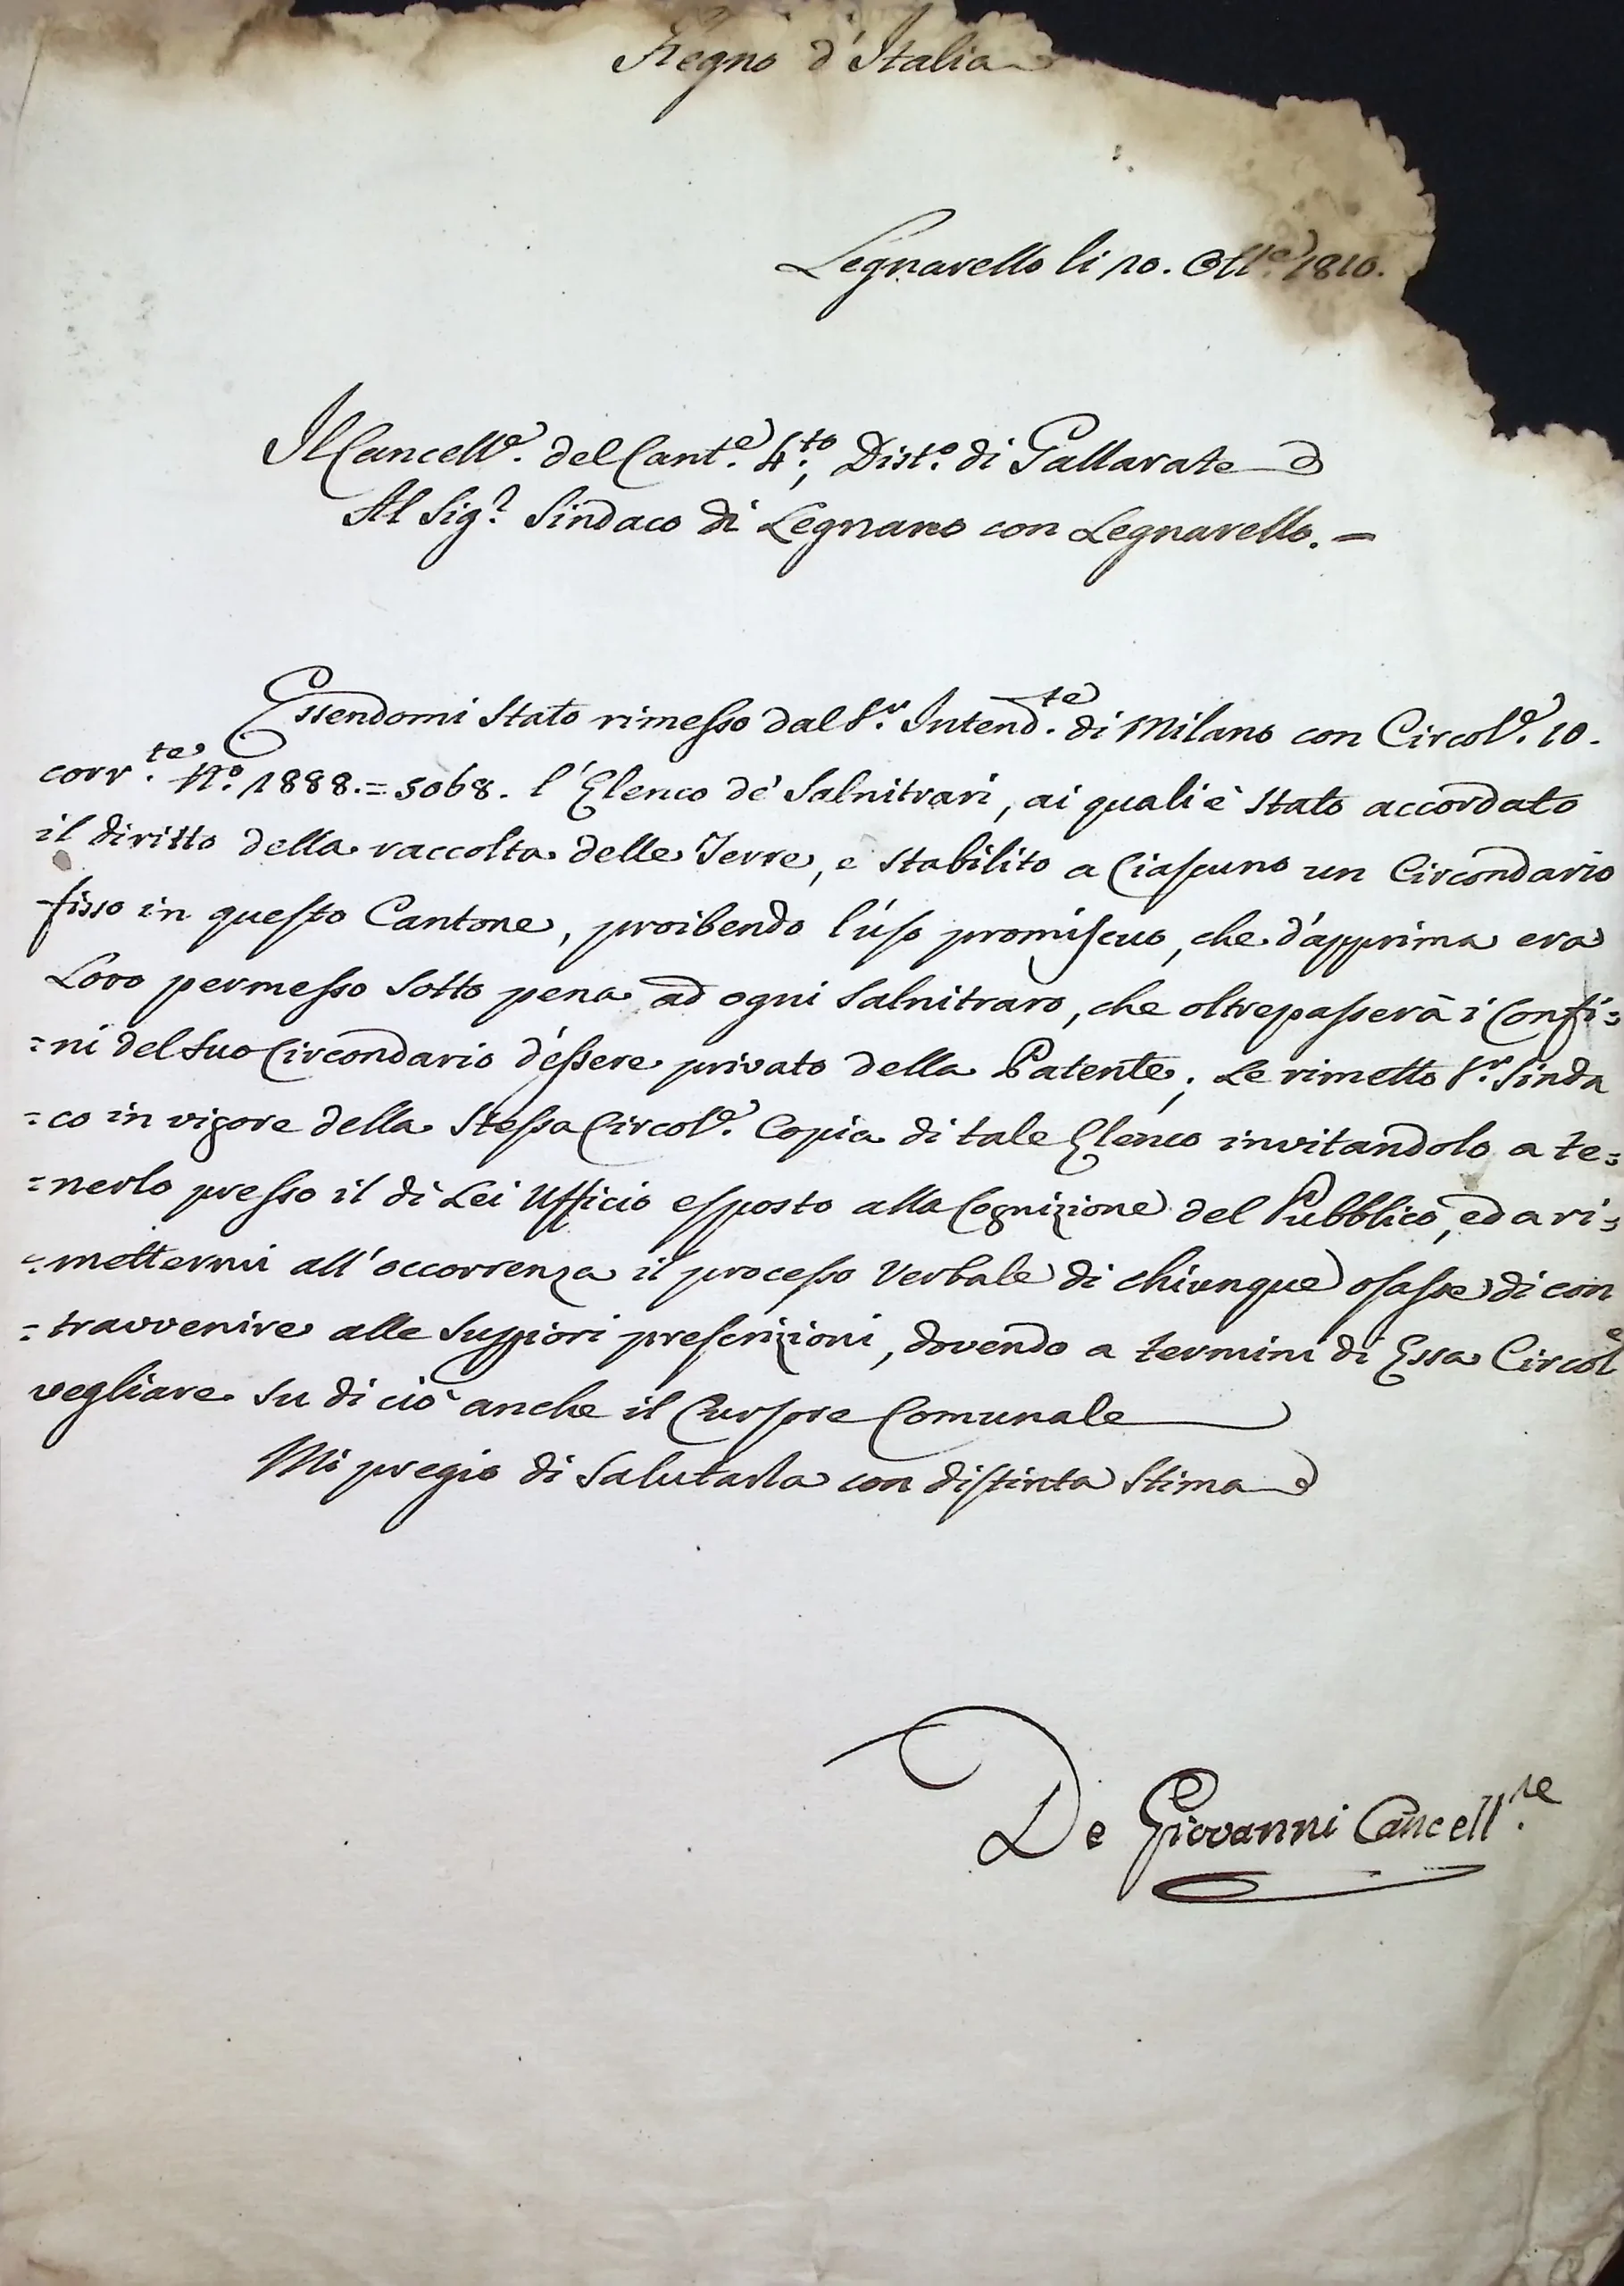 Regno d'Italia
Legnarello li 20. Ott.e 1810.
Il Cancell.e del Cant.e 4.to, Dist.o di Gallarate
Al Sig.r Sindaco di Legnano con Legnarello. =
Essendomi Stato rimesso dal S.r Intend.te di Milano con Circol.e 10.
corr.te N.o 1888. = 5068. l'Elenco de' Salnitrari, ai quali è Stato accordato
il diritto della raccolta delle Terre, e Stabilito a Ciascuno un Circondario
fisso in questo Cantone, proibendo l'uso promiscuo, che d'apprima era
Loro permesso Sotto pena ad ogni Salnitraro, che oltrepasserà i Confi=
=ni del Suo Circondario d'essere privato della Patente; Le rimetto S.r Sinda
=co in vigore della Stessa Circol.e Copia di tale Elenco invitandolo a te=
=nerlo presso il di Lei Ufficio esposto alla Cognizione del Pubblico, ed a ri=
=mettermi all'occorrenza il processo Verbale di chiunque osasse di con
=travvenire alle Suppiori prescrizioni, dovendo a termini di Essa Circol.e
vegliare Su di ciò anche il Cursore Comunale
Mi pregio di Salutarla con distinta Stima
De Giovanni Cancell.re